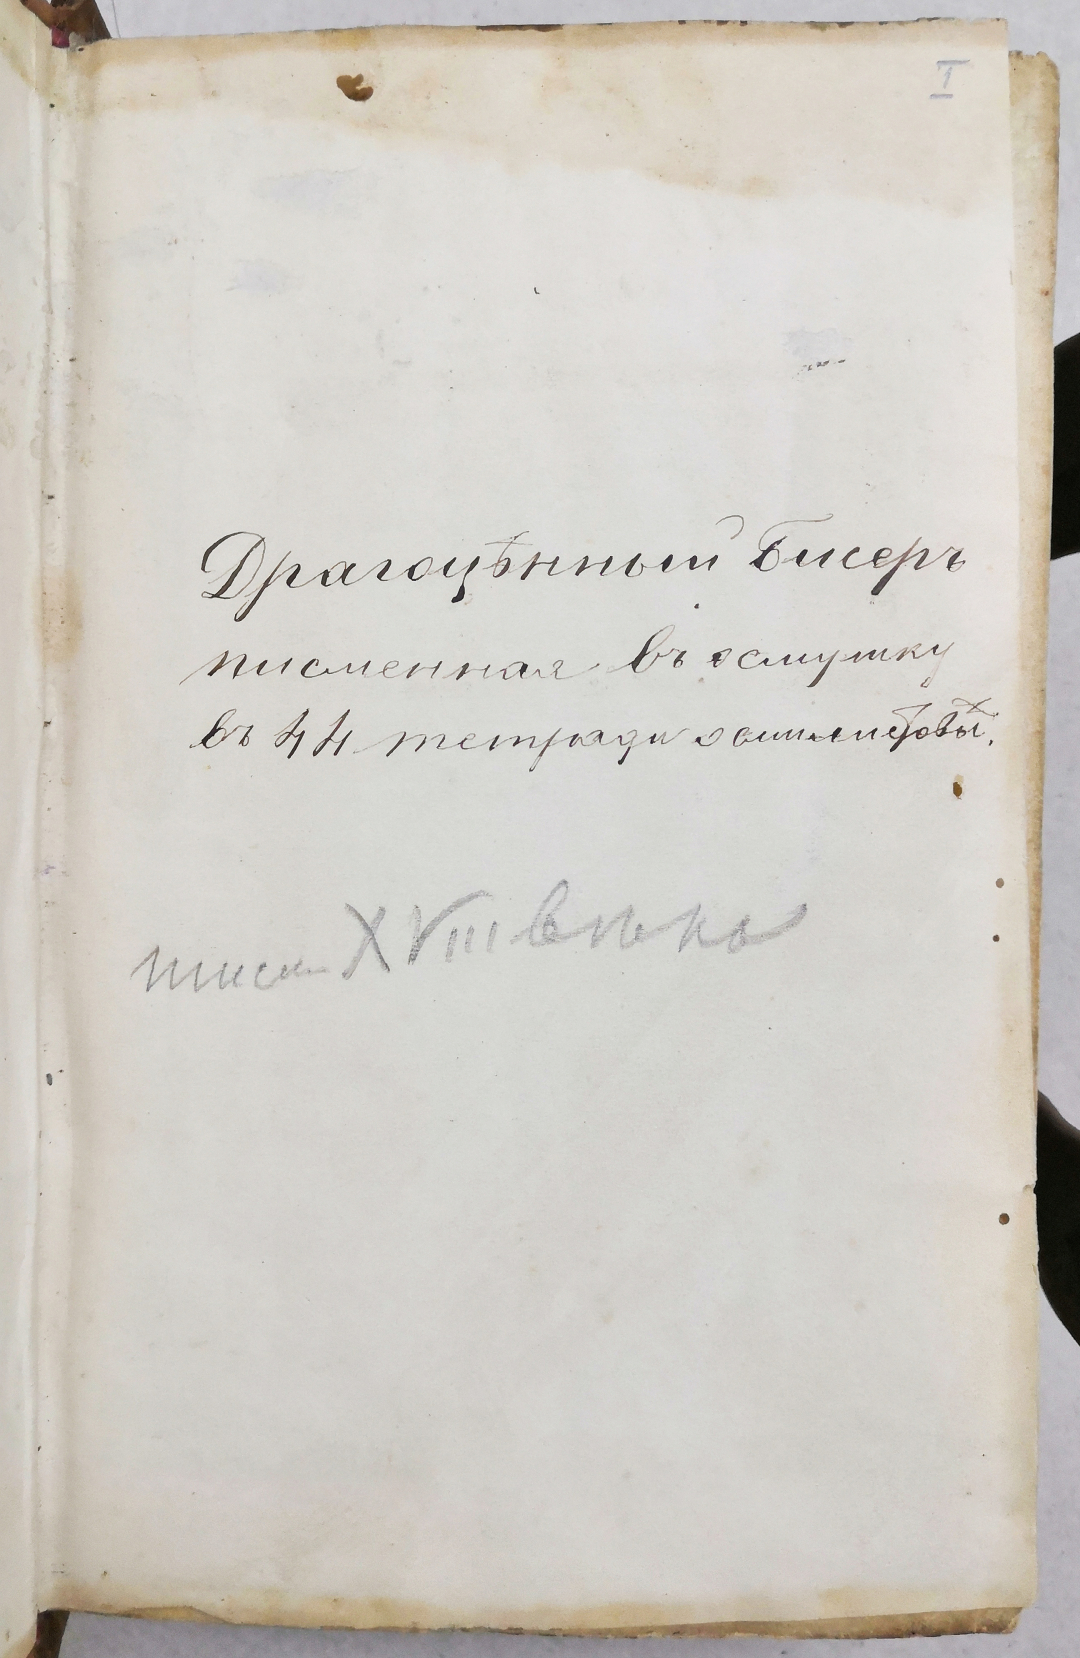 I
Драгоцѣнный Бисеръ
писменная въ осмушку
въ 44 тетради осмилистовых.
писм XVIII вѣка